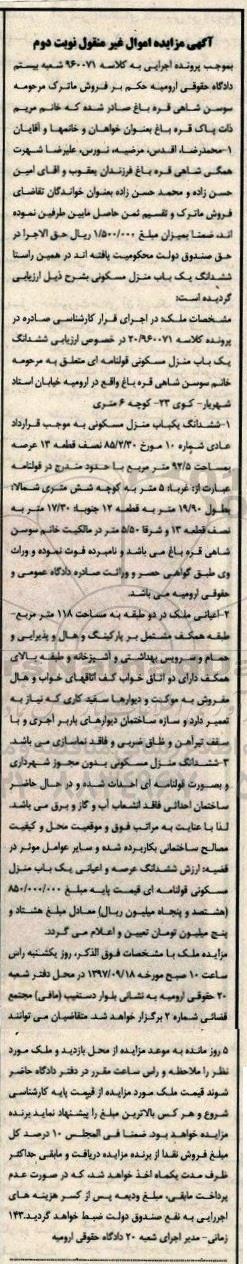 آگهی مزایده اموال غیر منقول نوبت دوم
بموجب پرونده اجرایی به کلاسه ۹۶۰۰۷۱ شعبه بیستم
دادگاه حقوقی ارومیه حکم بر فروش ماترک مرحومه
سوسن شاهی قره باغ صادر شده که خانم مریم
ذات پاک قره باغ بعنوان خواهان و خانمها و آقایان
۱-محمدرضا، اقدس، مرضیه، نورس، علیرضا شهرت
همگی شاهی قره باغ فرزندان یعقوب و اقای امین
حسن زاده و محمد حسن زاده بعنوان خواندگان تقاضای
فروش ماترک و تقسیم ثمن حاصل مابین طرفین نموده
اند، ضمنا بمیزان مبلغ ۱/۵۰۰/۰۰۰ ریال حق الاجرا در
حق صندوق دولت محکومیت یافته اند در همین راستا
ششدانگ یک باب منزل مسکونی بشرح ذیل ارزیابی
گردیده است:
مشخصات ملک: در اجرای قرار کارشناسی صادره در
پرونده کلاسه ۲۰/۹۶۰۰۷۱ در خصوص ارزیابی ششدانگ
یک باب منزل مسکونی قولنامه ای متعلق به مرحومه
خانم سوسن شاهی قره باغ واقع در ارومیه خیابان استاد
شهریار- کوی ۲۳- کوچه ۶ متری
۱-ششدانگ یکباب منزل مسکونی به موجب قرارداد
عادی شماره ۱۰ مورخ ۸۵/۲/۳۰ نصف قطعه ۱۳ عرصه
بمساحت ۹۲/۵ متر مربع با حدود مندرج در قولنامه
عبارت از: غربا: ۵ متر به کوچه شش متری شمالا:
بطول ۱۹/۹۰ متر به قطعه ۱۲ جنوبا: ۱۷/۳۰ متر به
نصف قطعه ۱۳ و شرقا ۵/۵۰ متر در مالکیت خانم سوسن
شاهی قره باغ می باشد و نامبرده فوت نموده و وراث
وی طبق گواهی حصر و وراثت صادره دادگاه عمومی و
حقوقی ارومیه می باشد.
۲-اعیانی ملک در دو طبقه به مساحت ۱۱۸ متر مربع-
طبقه همکف مشتمل بر پارکینگ و هال و پذیرایی و
حمام و سرویس بهداشتی و آشپزخانه و طبقه بالای
همکف دارای دو اتاق خواب کف اتاقهای خواب و هال
مفروش به موکت و دیوارها سفید کاری که نیاز به
تعمیر دارد و سازه ساختمان دیوارهای باربر آجری و با
سقف تیرآهن و طاق ضربی و فاقد نماسازی می باشد.
۳-ششدانگ منزل مسکونی بدون مجوز شهرداری
و بصورت قولنامه ای احداث شده و در حال حاضر
ساختمان احداثی فاقد انشعاب آب و گاز و برق می باشد.
لذا با عنایت به مراتب فوق و موقعیت محل و کیفیت
مصالح ساختمانی بکاربرده شده و سایر عوامل موثر در
قضیه: ارزش ششدانگ عرصه و اعیانی یک باب منزل
مسکونی قولنامه ای قیمت پایه مبلغ ۸۵۰/۰۰۰/۰۰۰
(هشتصد و پنجاه میلیون ریال) معادل مبلغ هشتاد و
پنج میلیون تومان تعیین و اعلام می گردد.
مزایده ملک با مشخصات فوق الذکر، روز یکشنبه راس
ساعت ۱۰ صبح مورخه ۱۳۹۷/۰۹/۱۸ در محل دفتر شعبه
۲۰ حقوقی ارومیه به نشانی بلوار دستغیب (مافی) مجتمع
قضائی شماره ۲ برگزار خواهد شد. متقاضیان می توانند
۵ روز مانده به موعد مزایده از محل بازدید و ملک مورد
نظر را ملاحظه و راس ساعت مقرر در دفتر دادگاه حاضر
شوند قیمت ملک مورد مزایده از قیمت پایه کارشناسی
شروع و هر کس بالاترین مبلغ را پیشنهاد نماید برنده
مزایده خواهد بود. ضمنا فی المجلس ۱۰ درصد کل
مبلغ فروش نقدا از برنده مزایده دریافت و مابقی حداکثر
ظرف مدت یکماه اخذ خواهد شد، که در صورت عدم
پرداخت مابقی، مبلغ ودیعه پس از کسر هزینه های
اجرایی به نفع صندوق دولت ضبط خواهد گردید.۱۴۳
زمانی- مدیر اجرای شعبه ۲۰ دادگاه حقوقی ارومیه